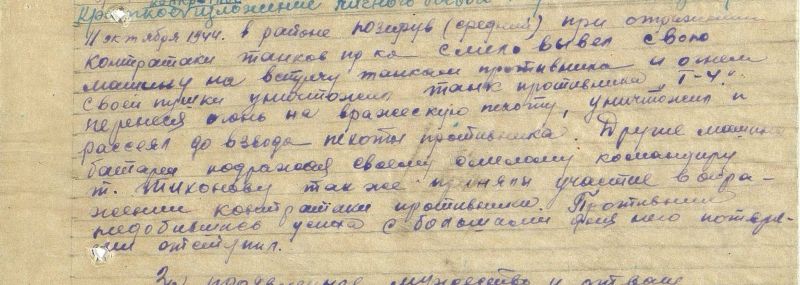 конкретное
Краткое изложение личного боевого
11 октября 1944. в районе Позерув (средний) при отражении
контратаки танков пр-ка смело вывел свою
машину на встречу танкам противника и огнем
своей пушки уничтожил танк противника "Т-4".
перенеся огонь на вражескую пехоту, уничтожил и
рассеял до взвода пехоты противника. Другие машины
батареи подражая своему смелому командиру
т. Тихонову также приняли участие в отра-
жении контратаки противника. Противник
недобившись успеха с большими для него потеря-
ми отступил.
За проявленное мужество и отвагу